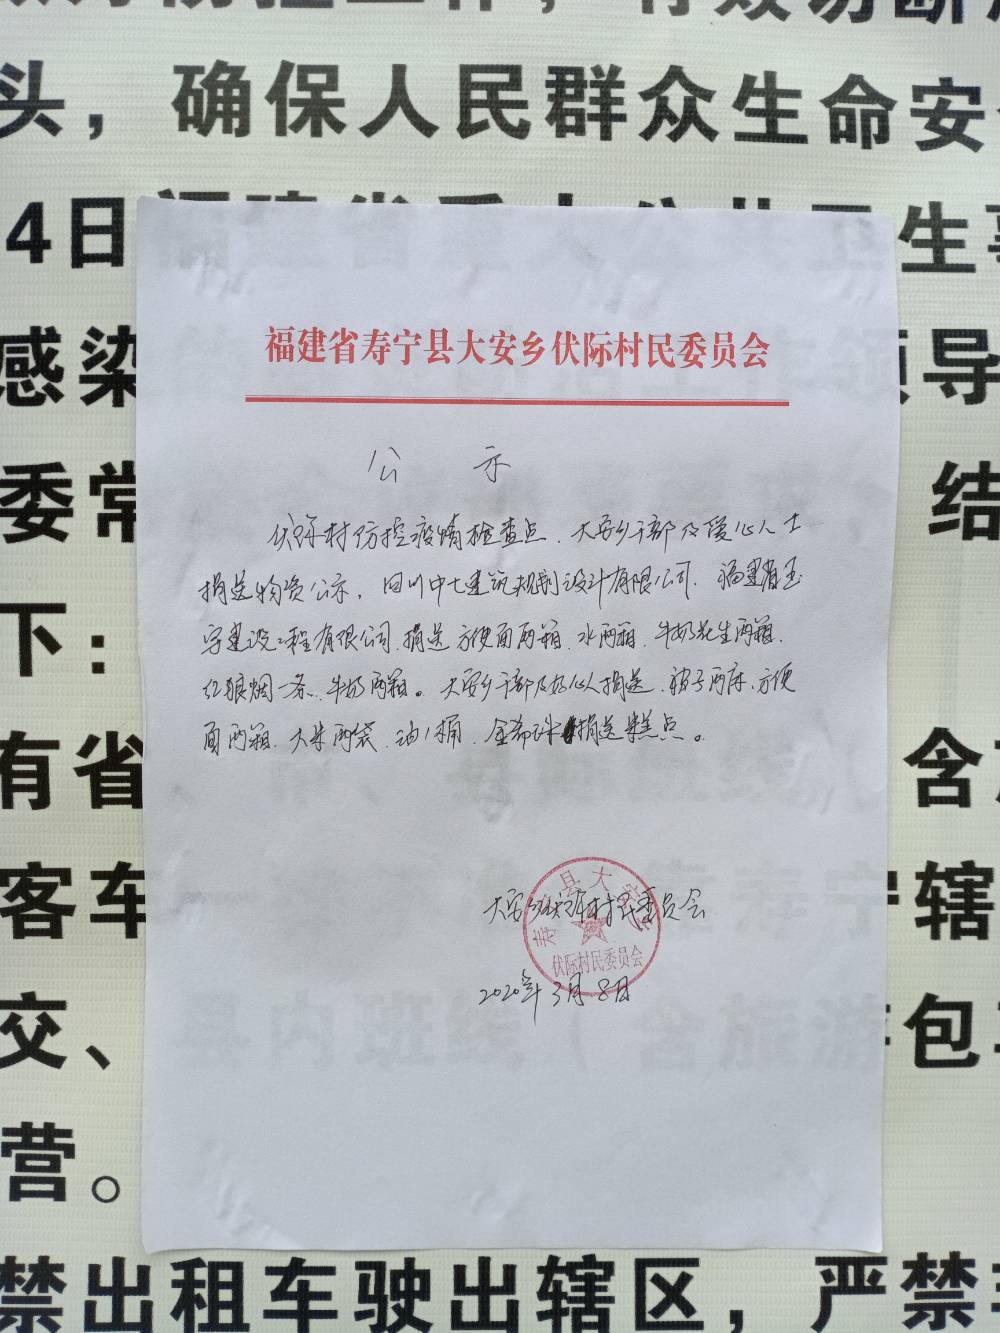 头，确保人民群众生命安
4日
生
感染
领导
委常
结
下：
有省
含
客车
辖
交、
包
营。
禁出租车驶出辖区，严禁
福建省寿宁县大安乡伏际村民委员会
公 示
伏际村防控疫情检查点、大安乡干部及爱心人士
捐送物资公示，四川中七建筑规划设计有限公司、福建省玉
宇建设工程有限公司捐送方便面两箱、水两箱、牛奶花生两箱、
红狼烟一条、牛奶两箱。大安乡干部及好心人捐送、被子两床、方便
面两箱、大米两袋、油1桶、捐送糕点。
大安乡伏际村民委员会
2020年3月8日
伏际村民委员会